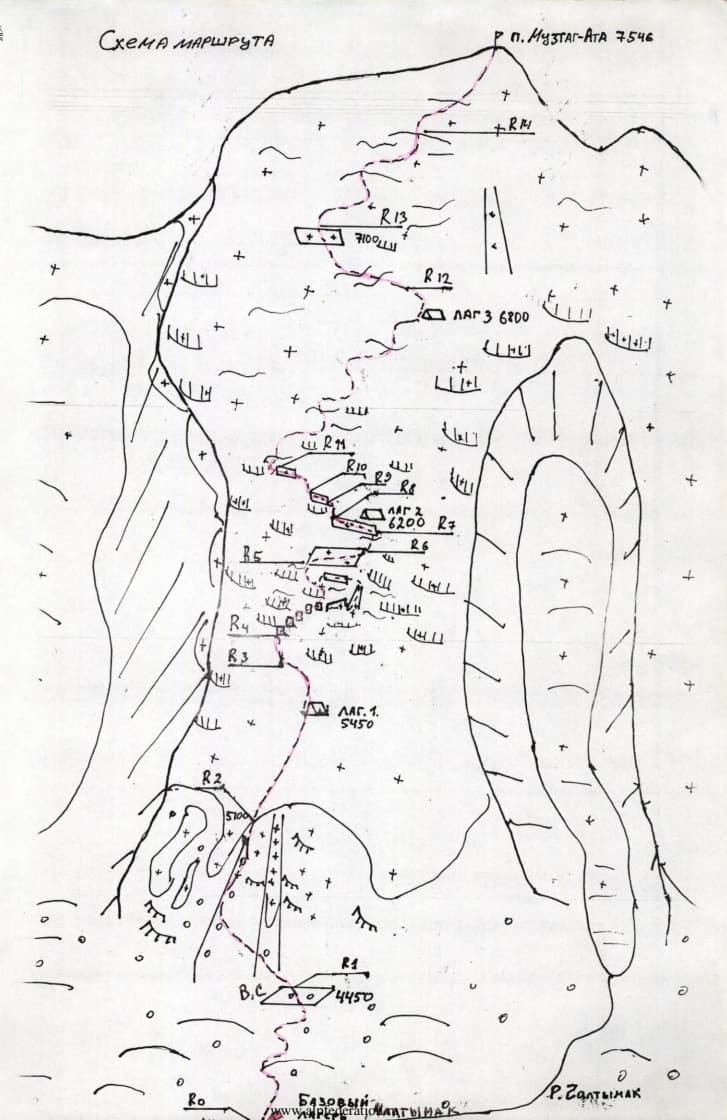 Схема маршрута
п. Музтаг-Ата 7546
R14
R13
7100
R12
ЛАГ 3 6800
R11
R10
R9
R8
ЛАГ 2
6200
R7
R6
R5
R4
R3
ЛАГ. 1.
5450
R2
5100
R1
B.C
4450
R0
Базовый
Р. Чалтымак